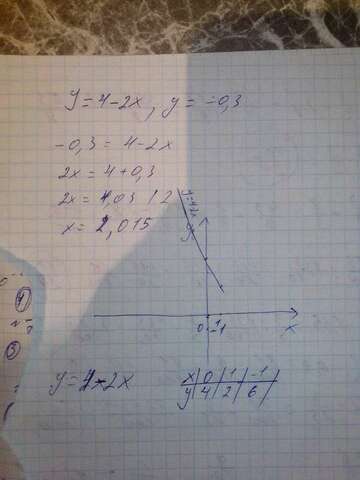 y = 4 - 2x, y = -0,3
-0,3 = 4 - 2x
2x = 4 + 0,3
2x = 4,03 / 2
x = 2,015
y=4-2x
y
0 1
x
y = 4 - 2x
x | 0 | 1 | -1 |
y | 4 | 2 | 6 |